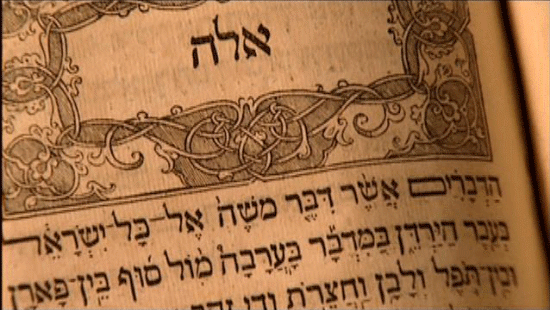 אלה
הַדְּבָרִים אֲשֶׁר דִּבֶּר מֹשֶׁה אֶל־כָּל־יִשְׂרָאֵל
בְּעֵבֶר הַיַּרְדֵּן בַּמִּדְבָּר בָּעֲרָבָה מוֹל סוּף בֵּין־פָּארָן
וּבֵין־תֹּפֶל וְלָבָן וַחֲצֵרֹת